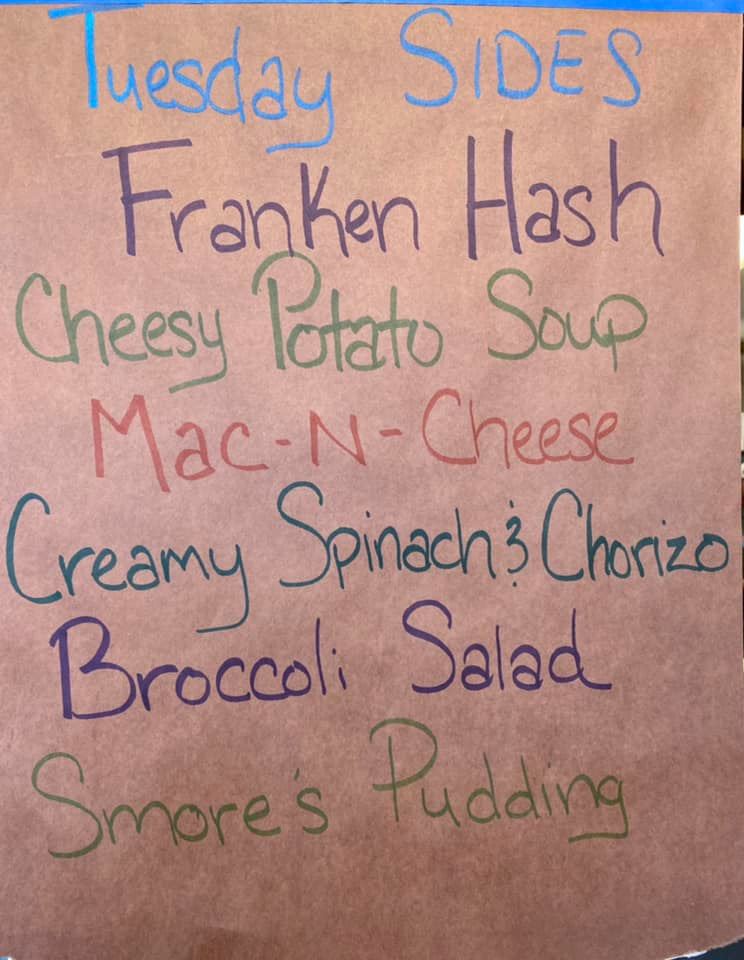 Tuesday SIDES
Franken Hash
Cheesy Potato Soup
Mac-N-Cheese
Creamy Spinach & Chorizo
Broccoli Salad
Smore's Pudding